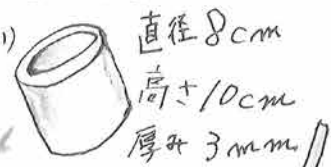 1)
直径8cm
高さ10cm
厚み3mm